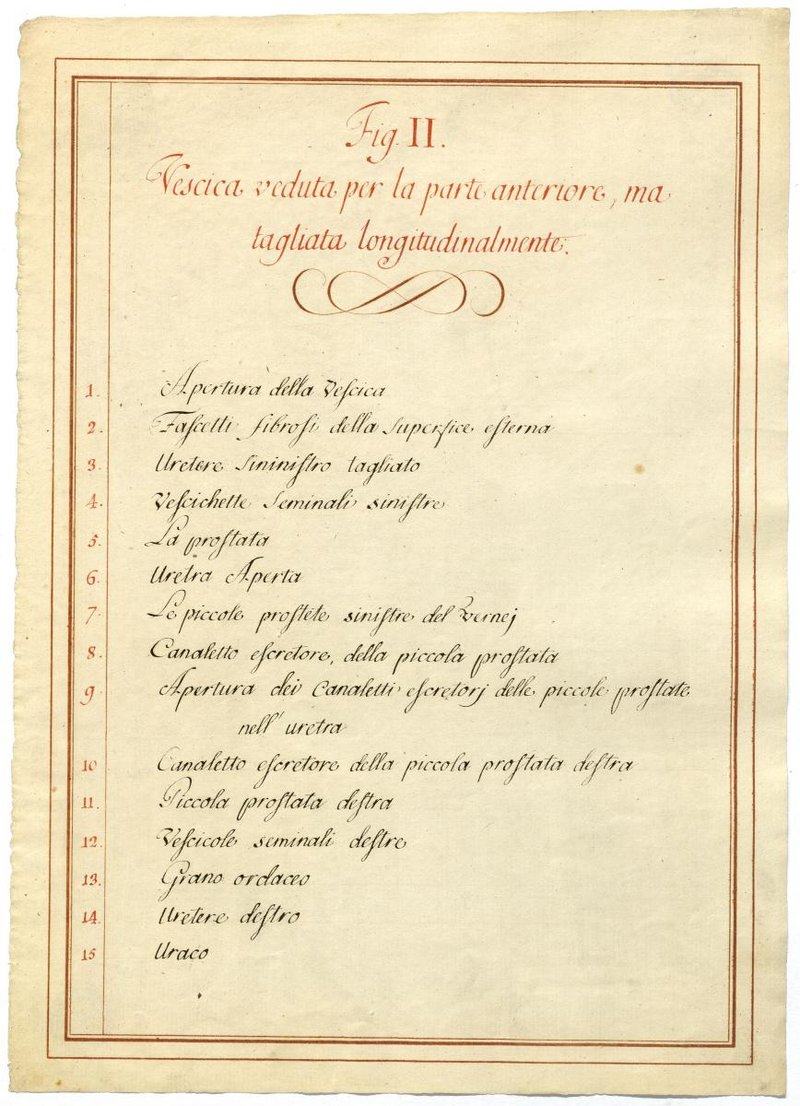 Fig. II.
Vescica veduta per la parte anteriore, ma
tagliata longitudinalmente.
1. Apertura della Veſcica
2. Faſcetti fibroſi della Superfice eſterna
3. Uretere Sininiſtro tagliato
4. Veſcichette Seminali siniſtre
5. La proſtata
6. Uretra Aperta
7. Le piccole proſtete siniſtre del Vernej
8. Canaletto eſcretore, della piccola proſtata
9 Apertura dei Canaletti eſcretorj delle piccole proſtate
nell' uretra
10 Canaletto eſcretore della piccola proſtata deſtra
11. Piccola proſtata deſtra
12. Veſcicole seminali deſtre
13. Grano ordaceo
14. Uretere deſtro
15 Uraco